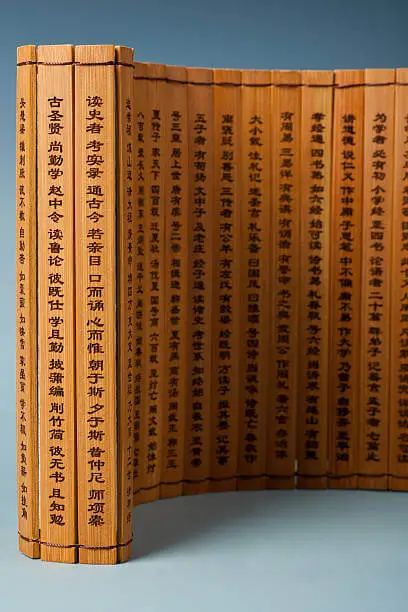 为学者 必有初 小学终 至四书 论语者 二十篇 群弟子 记善言 孟子者 七篇止
讲道德 说仁义 作中庸 子思笔 中不偏 庸不易 作大学 乃曾子 自修齐 至平治
孝经通 四书熟 如六经 始可读 诗书易 礼春秋 号六经 当讲求 有连山 有归藏
有周易 三易详 有典谟 有训诰 有誓命 书之奥 我周公 作周礼 著六官 存治体
大小戴 注礼记 述圣言 礼乐备 曰国风 曰雅颂 号四诗 当讽咏 诗既亡 春秋作
寓褒贬 别善恶 三传者 有公羊 有左氏 有谷梁 经既明 方读子 撮其要 记其事
五子者 有荀扬 文中子 及老庄 经子通 读诸史 考世系 知终始 自羲农 至黄帝
号三皇 居上世 唐有虞 号二帝 相揖逊 称盛世 夏有禹 商有汤 周文武 称三王
夏传子 家天下 四百载 迁夏社 汤伐夏 国号商 六百载 至纣亡 周武王 始诛纣
八百载 最长久 周辙东 王纲坠 逞干戈 尚游说
读史者 考实录 通古今 若亲目 口而诵 心而惟 朝于斯 夕于斯 昔仲尼 师项橐
古圣贤 尚勤学 赵中令 读鲁论 彼既仕 学且勤 披蒲编 削竹简 彼无书 且知勉
头悬梁 锥刺股 彼不教 自勤苦 如囊萤 如映雪 家虽贫 学不辍 如负薪 如挂角